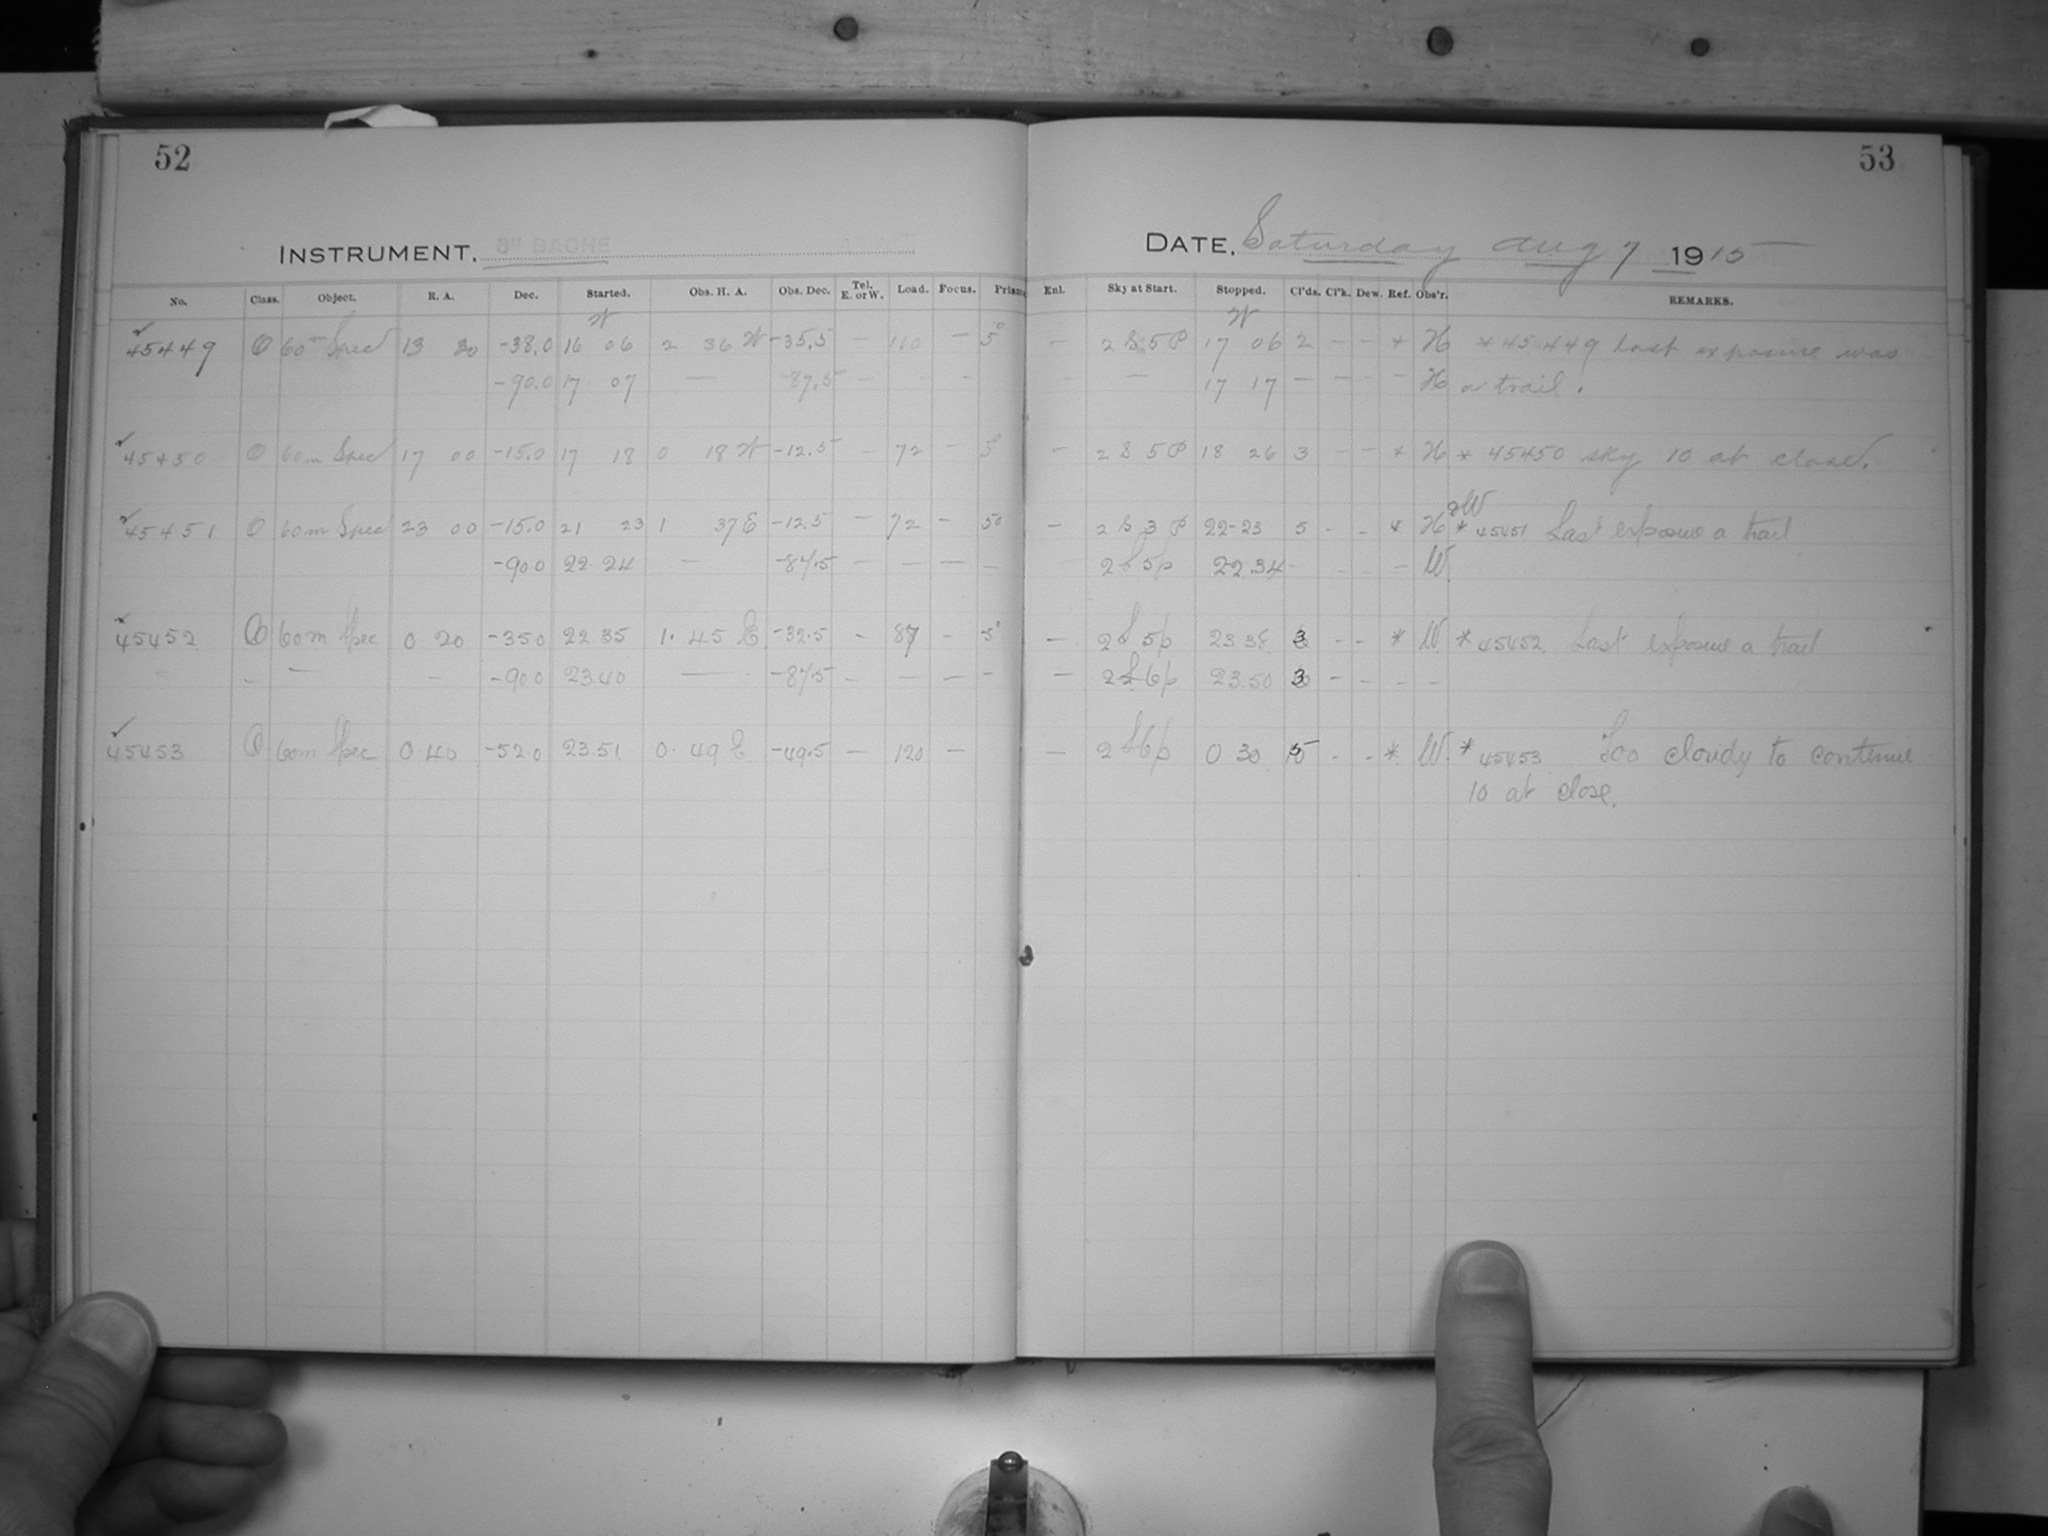 52
53
INSTRUMENT, 8" BACHE
DATE, Saturday Aug 7 1915
No. Class. Object. R. A. Dec. Started. Obs. H. A. Obs. Dec. Tel. E. or W. Load. Focus. Prism Enl. Sky at Start. Stopped. Cl'ds. Cl'k. Dew. Ref. Obs'r. REMARKS.
W W
45449 O 60m Spec 13 20 -38.0 16 06 2 36 W -35.5 — 110 — 5° — 2 S 5 P 17 06 2 — — * H * 45449 last exposure was
-90.0 17 07 — -87.5 — - - - — 17 17 — — — - H a trail.
45450 O 60m Spec 17 00 -15.0 17 18 0 18 W -12.5 — 72 — 5° — 2 S 5 P 18 26 3 — — * H * 45450 sky 10 at close.
45451 O 60m Spec 23 00 -15.0 21 23 1 37 E -12.5 — 72 — 5° — 2 S 3 P 22-23 5 - - * H & W * 45451 Last exposure a trail
-90.0 22.24 — -87.5 — — — — 2 S 5p 22.34 - - - — W.
45452 O 60m Spec 0 20 -35.0 22.35 1. 45 E -32.5 - 87 - 5° — 2 S 5p 23.38 3 - - * W. * 45452 Last exposure a trail
- - — - -90.0 23.40 — -87.5 - — — - — 2 S 6p 23.50 3 - - - -
45453 O 60m Spec 0 40 -52.0 23.51 0. 49 E -49.5 — 120 — — 2 S 6p 0 30 5 - - * W. * 45453 Too cloudy to continue
10 at close.